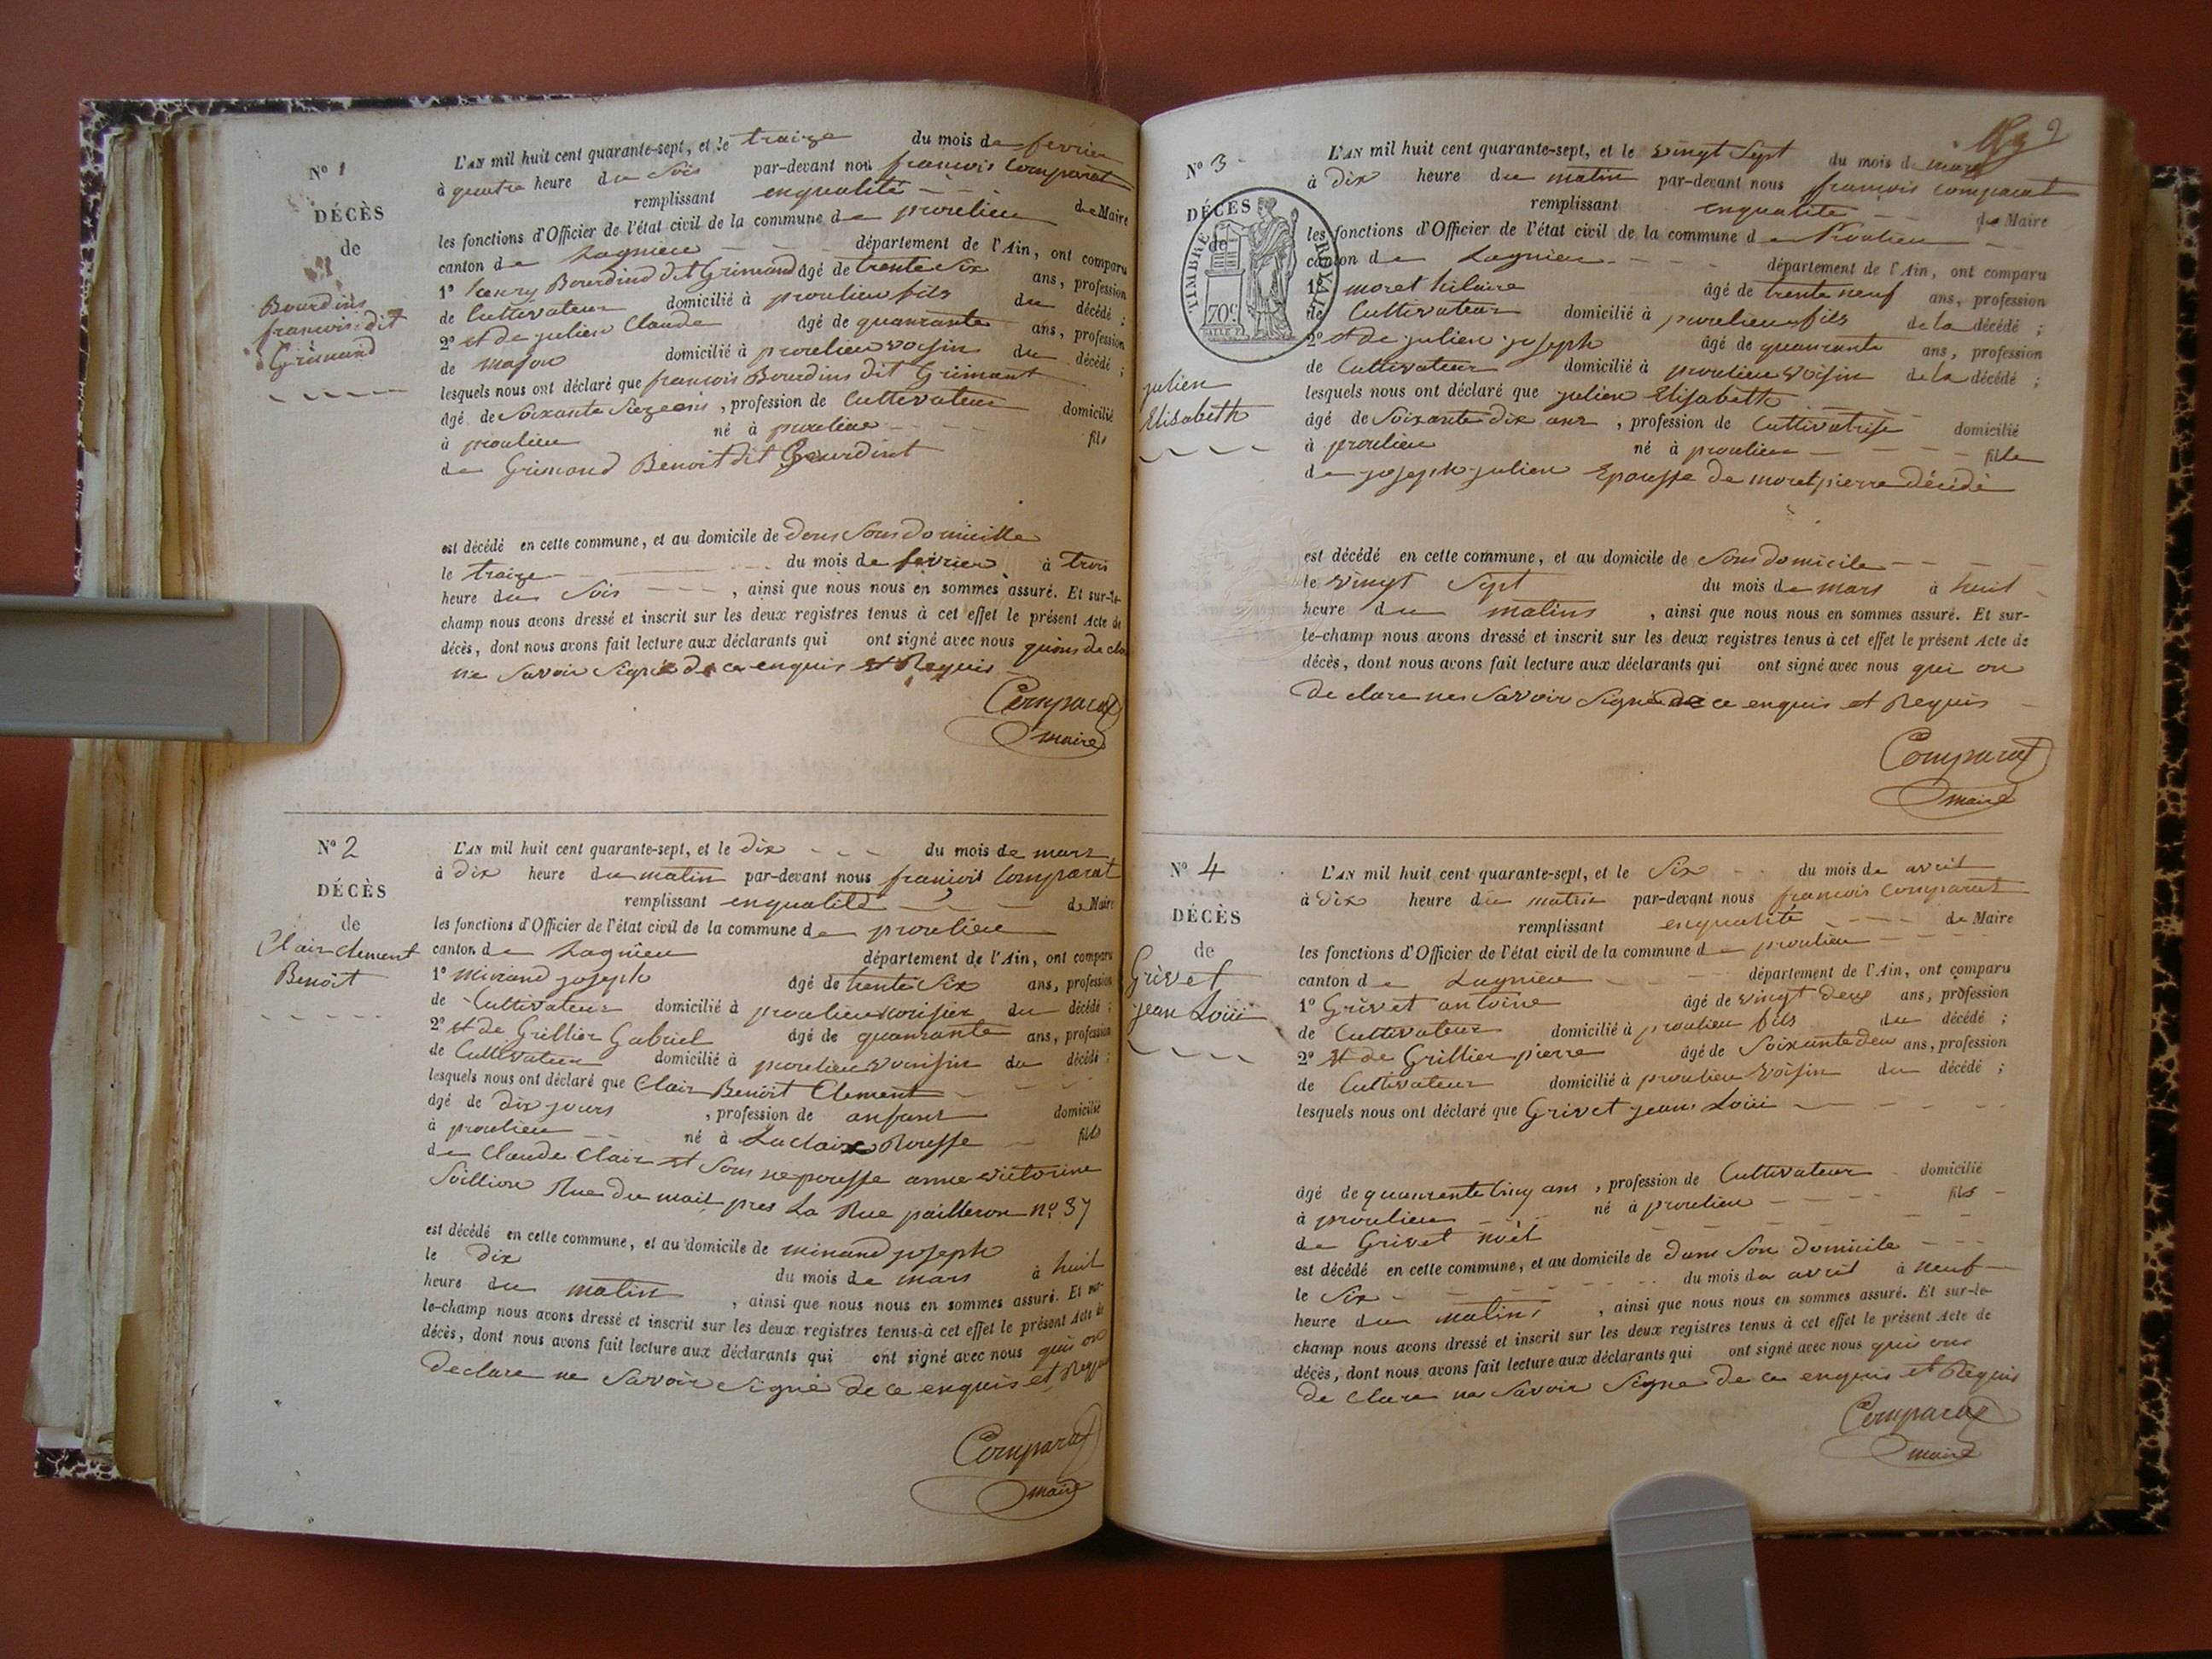 N° 1
DÉCÈS
de
Bourdins
francois dit
Grimand
L'AN mil huit cent quarante-sept, et le traize du mois de fevrier
à quatre heure du Soir par-devant nous francois Comparat
remplissant enqualité de Maire
les fonctions d'Officier de l'état civil de la commune de proulieu
canton de Lagnieu département de l'Ain, ont comparu
1° henry Bourdind dit Grimand âgé de trente Six ans, profession
de Cultivateur domicilié à proulieu fils du décédé ;
2° et de julien Claude âgé de quanrante ans, profession
de mason domicilié à proulieu voisin du décédé ;
lesquels nous ont déclaré que francois Bourdins dit Grimant
âgé de Soixante Seze ans, profession de Cultivateur domicilié
à proulieu né à proulieu fils
de Grimond Benoit dit Bourdint
est décédé en cette commune, et au domicile de dens Sons domicille
le traize du mois de fevrier à trois
heure du Soir, ainsi que nous nous en sommes assuré. Et sur-le-
champ nous avons dressé et inscrit sur les deux registres tenus à cet effet le présent Acte de
décès, dont nous avons fait lecture aux déclarants qui ont signé avec nous quions de cla
ne Savoir Signé de ce enquis et Requis
Comparat
maire
N° 2
DÉCÈS
de
Clair clement
Benoit
L'AN mil huit cent quarante-sept, et le dix du mois de mars
à dix heure du matin par-devant nous francois Comparat
remplissant enqualité de Maire
les fonctions d'Officier de l'état civil de la commune de proulieu
canton de Lagnieu département de l'Ain, ont comparu
1° minand joseph âgé de trente Six ans, profession
de Cultivateur domicilié à proulieu voisien du décédé ;
2° et de Grillier Gabriel âgé de quanrante ans, profession
de Cultivateur domicilié à proulieu voinsin du décédé ;
lesquels nous ont déclaré que Clair Benoit Clement
âgé de dix jours, profession de anfant domicilié
à proulieu né à La Claix Rousse fils
de Claude Clair et Sons nepousse anne victorine
Soillion Rue du mail pres La Rue pailleron n° 37
est décédé en cette commune, et au domicile de minand joseph
le dix du mois de mars à huit
heure du matin, ainsi que nous nous en sommes assuré. Et sur-
le-champ nous avons dressé et inscrit sur les deux registres tenus à cet effet le présent Acte de
décès, dont nous avons fait lecture aux déclarants qui ont signé avec nous qui on
declare ne Savoir Signé de ce enquis et Requis
Comparat
maire
2
N° 3
DÉCÈS
de
TIMBRE ROYAL
70 c
julien
Elisabeth
L'AN mil huit cent quarante-sept, et le vingt Sept du mois de mars
à dix heure du matin par-devant nous francois comparat
remplissant enqualite de Maire
les fonctions d'Officier de l'état civil de la commune de Proulieu
canton de Lagnieu département de l'Ain, ont comparu
1° moret hilaire âgé de trente neuf ans, profession
de Cultivateur domicilié à proulieu fils de la décédé ;
2° et de julien joseph âgé de quanrante ans, profession
de Cultivateur domicilié à proulieu voisin de la décédé ;
lesquels nous ont déclaré que julien Elisabeth
âgé de Soixante dix ans, profession de Cultivatrise domicilié
à proulieu né à proulieu fille
de joseph julien Epousse de moret pierre décédé
est décédé en cette commune, et au domicile de Sons domicile
le vingt Sept du mois de mars à huit
heure du matins, ainsi que nous nous en sommes assuré. Et sur-
le-champ nous avons dressé et inscrit sur les deux registres tenus à cet effet le présent Acte de
décès, dont nous avons fait lecture aux déclarants qui ont signé avec nous qui on
de clare nes Savoir Signé de ce enquis et Requis
Comparat
maire
N° 4
DÉCÈS
de
Grivet
jean Loüi
L'AN mil huit cent quarante-sept, et le Six du mois de avril
à dix heure du matin par-devant nous francois Comparat
remplissant enqualité de Maire
les fonctions d'Officier de l'état civil de la commune de proulieu
canton de Lagnieu département de l'Ain, ont comparu
1° Grivet antoine âgé de vingt deux ans, profession
de Cultivateur domicilié à proulieu fils du décédé ;
2° et de Grillier pierre âgé de Soixante deu ans, profession
de Cultivateur domicilié à proulieu voisin du décédé ;
lesquels nous ont déclaré que Grivet jean Loüi
âgé de quanrente Cinq ans, profession de Cultivateur domicilié
à proulieu né à proulieu fils
de Grivet noël
est décédé en cette commune, et au domicile de dans Son domicile
le Six du mois de avril à neuf
heure du matins, ainsi que nous nous en sommes assuré. Et sur-le-
champ nous avons dressé et inscrit sur les deux registres tenus à cet effet le présent Acte de
décès, dont nous avons fait lecture aux déclarants qui ont signé avec nous qui ons
de clare ne Savoir Signe de ce enquis et Requis
Comparat
maire